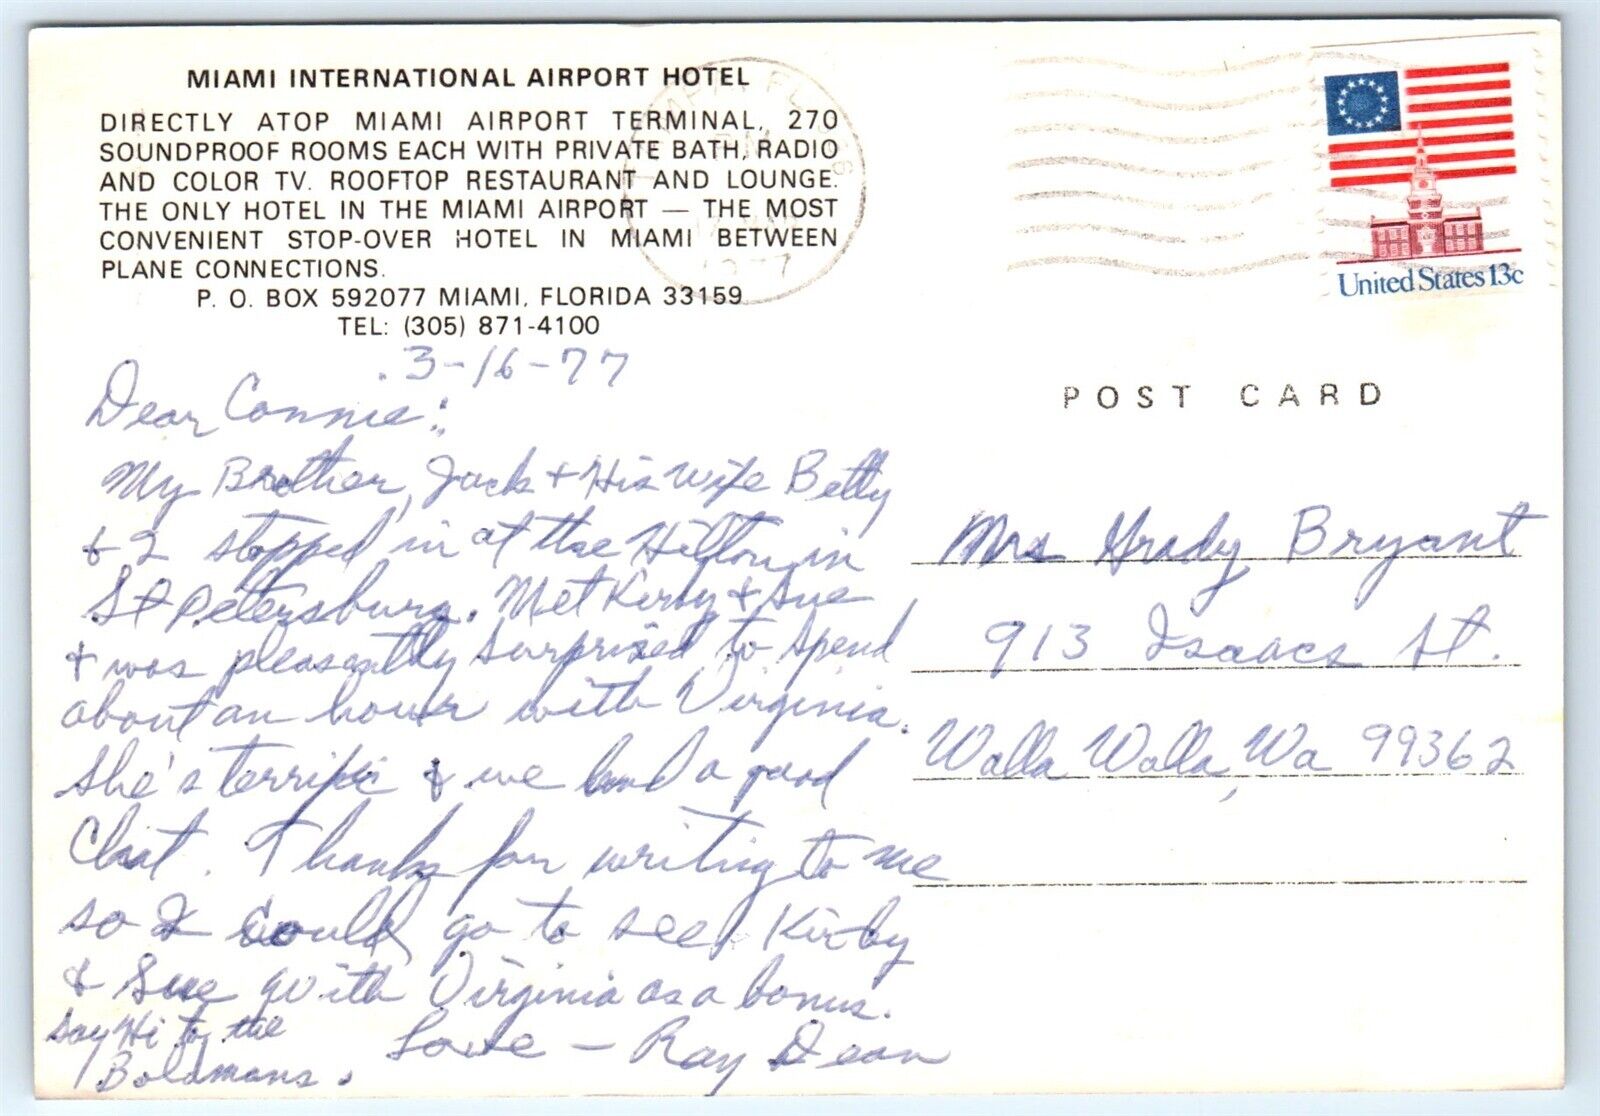 MIAMI INTERNATIONAL AIRPORT HOTEL
DIRECTLY ATOP MIAMI AIRPORT TERMINAL, 270
SOUNDPROOF ROOMS EACH WITH PRIVATE BATH, RADIO
AND COLOR TV. ROOFTOP RESTAURANT AND LOUNGE.
THE ONLY HOTEL IN THE MIAMI AIRPORT — THE MOST
CONVENIENT STOP-OVER HOTEL IN MIAMI BETWEEN
PLANE CONNECTIONS.
P. O. BOX 592077 MIAMI, FLORIDA 33159
TEL: (305) 871-4100
3-16-77
Dear Connie:
My Brother, Jack & His Wife Betty
& I stopped in at the Hilton in
St Petersburg. Met Kirby & Sue
& was pleasantly surprised to spend
about an hour with Virginia.
She's terrific & we had a good
Chat. Thanks for writing to me
so I could go to see Kirby
& Sue with Virginia as a bonus.
Say Hi to the
Boldmans.
Love — Ray Dean
PM
1977
United States 13c
POST CARD
Mrs Grady Bryant
913 Isaacs St.
Walla Walla, Wa 99362